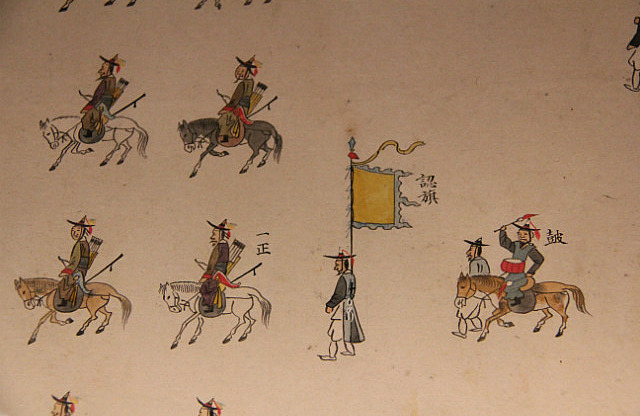 皷
認旗
一正